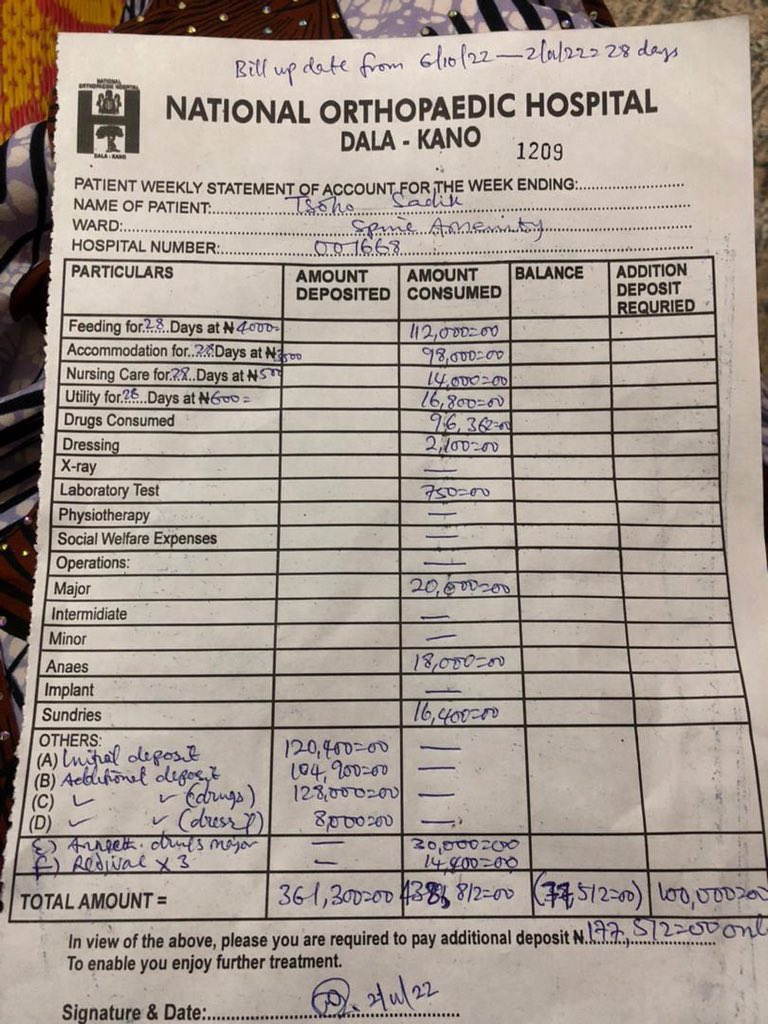 Bill up date from 6/10/22 — 2/11/22 = 28 days
NATIONAL ORTHOPAEDIC HOSPITAL
DALA - KANO
NATIONAL ORTHOPAEDIC HOSPITAL
DALA - KANO
1209
PATIENT WEEKLY STATEMENT OF ACCOUNT FOR THE WEEK ENDING:
NAME OF PATIENT: Tsoho Sadik
WARD: Spine Amenity
HOSPITAL NUMBER: 001668
PARTICULARS AMOUNT DEPOSITED AMOUNT CONSUMED BALANCE ADDITION DEPOSIT REQURIED
Feeding for 28 Days at ₦ 4000= 112,000=00
Accommodation for 28 Days at ₦3500 98,000=00
Nursing Care for 28 Days at ₦500 14,000=00
Utility for 28 Days at ₦600= 16,800=00
Drugs Consumed 96,362=00
Dressing 2,100=00
X-ray —
Laboratory Test 750=00
Physiotherapy —
Social Welfare Expenses —
Operations: —
Major 20,000=00
Intermidiate —
Minor —
Anaes 18,000=00
Implant —
Sundries 16,400=00
OTHERS:
(A) Initial deposit 120,400=00 —
(B) Additional deposit 104,900=00 —
(C) ✓ ✓ (drugs) 128,000=00 —
(D) ✓ ✓ (dress) 8,000=00 —
E) drugs major — 30,000=00
F) Revival x 3 — 14,400=00
TOTAL AMOUNT = 361,300=00 438,812=00 (77,512=00) 100,000=00
In view of the above, please you are required to pay additional deposit ₦ 177,512=00 only
To enable you enjoy further treatment.
Signature & Date: 2/11/22